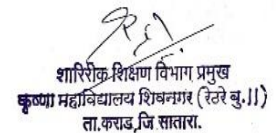 शारिरीक शिक्षण विभाग प्रमुख
कृष्णा महाविद्यालय शिवनगर (रेठरे बु.।।)
ता.कराड,जि सातारा.